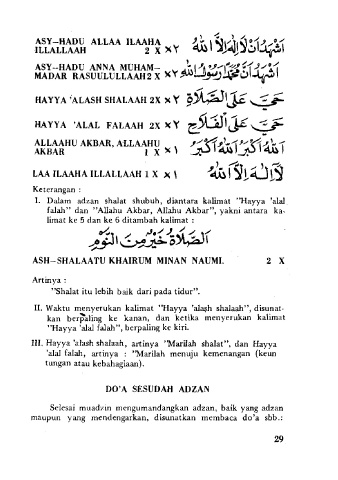 ASY-HADU ALLAA ILAAHA ILLALLAAH 2 X ×٢ اَشْهَدُ اَنْ لَا اِلٰهَ اِلَّا اللّٰهُ
ASY-HADU ANNA MUHAM-
MADAR RASUULULLAAH 2 X ×٢ اَشْهَدُ اَنَّ مُحَمَّدًا رَسُوْلُ اللّٰهِ
HAYYA 'ALASH SHALAAH 2X ×٢ حَيَّ عَلَى الصَّلَاةِ
HAYYA 'ALAL FALAAH 2X ×٢ حَيَّ عَلَى الْفَلَاحِ
ALLAAHU AKBAR, ALLAAHU
AKBAR 1 X ×١ اَللّٰهُ اَكْبَرُ اَللّٰهُ اَكْبَرُ
LAA ILAAHA ILLALLAAH 1 X ×١ لَا اِلٰهَ اِلَّا اللّٰهُ
Keterangan :
I. Dalam adzan shalat shubuh, diantara kalimat "Hayya 'alal
falah" dan "Allahu Akbar, Allahu Akbar", yakni antara ka-
limat ke 5 dan ke 6 ditambah kalimat :
اَلصَّلَاةُ خَيْرٌ مِنَ النَّوْمِ
ASH-SHALAATU KHAIRUM MINAN NAUMI. 2 X
Artinya :
"Shalat itu lebih baik dari pada tidur".
II. Waktu menyerukan kalimat "Hayya 'alash shalaah", disunat-
kan berpaling ke kanan, dan ketika menyerukan kalimat
"Hayya 'alal falah", berpaling ke kiri.
III. Hayya 'alash shalaah, artinya "Marilah shalat", dan Hayya
'alal falah, artinya : "Marilah menuju kemenangan (keun
tungan atau kebahagiaan).
DO'A SESUDAH ADZAN
Selesai muadzin mengumandangkan adzan, baik yang adzan
maupun yang mendengarkan, disunatkan membaca do'a sbb.:
29